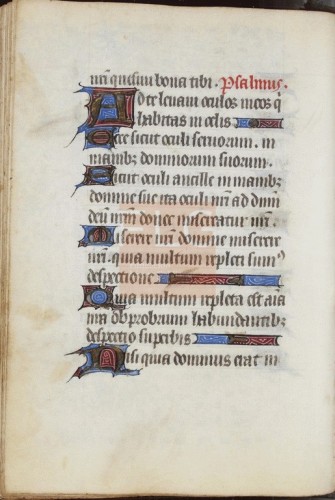 nri quesivi bona tibi. Psalmus.
Ad te levavi oculos meos q
habitas in celis
Ecce sicut oculi servorum. in
manibz dominorum suorum.
Sicut oculi ancille in manibz
domine sue ita oculi nri ad dnm
deu nrm donec misereatur nri.
Miserere nri domine miserere
nri. quia multum repleti sum9
despectione
Quia multum repleta est aia
nra obprobrium habundantibz
despectio superbis
Nisi quia dominus erat in